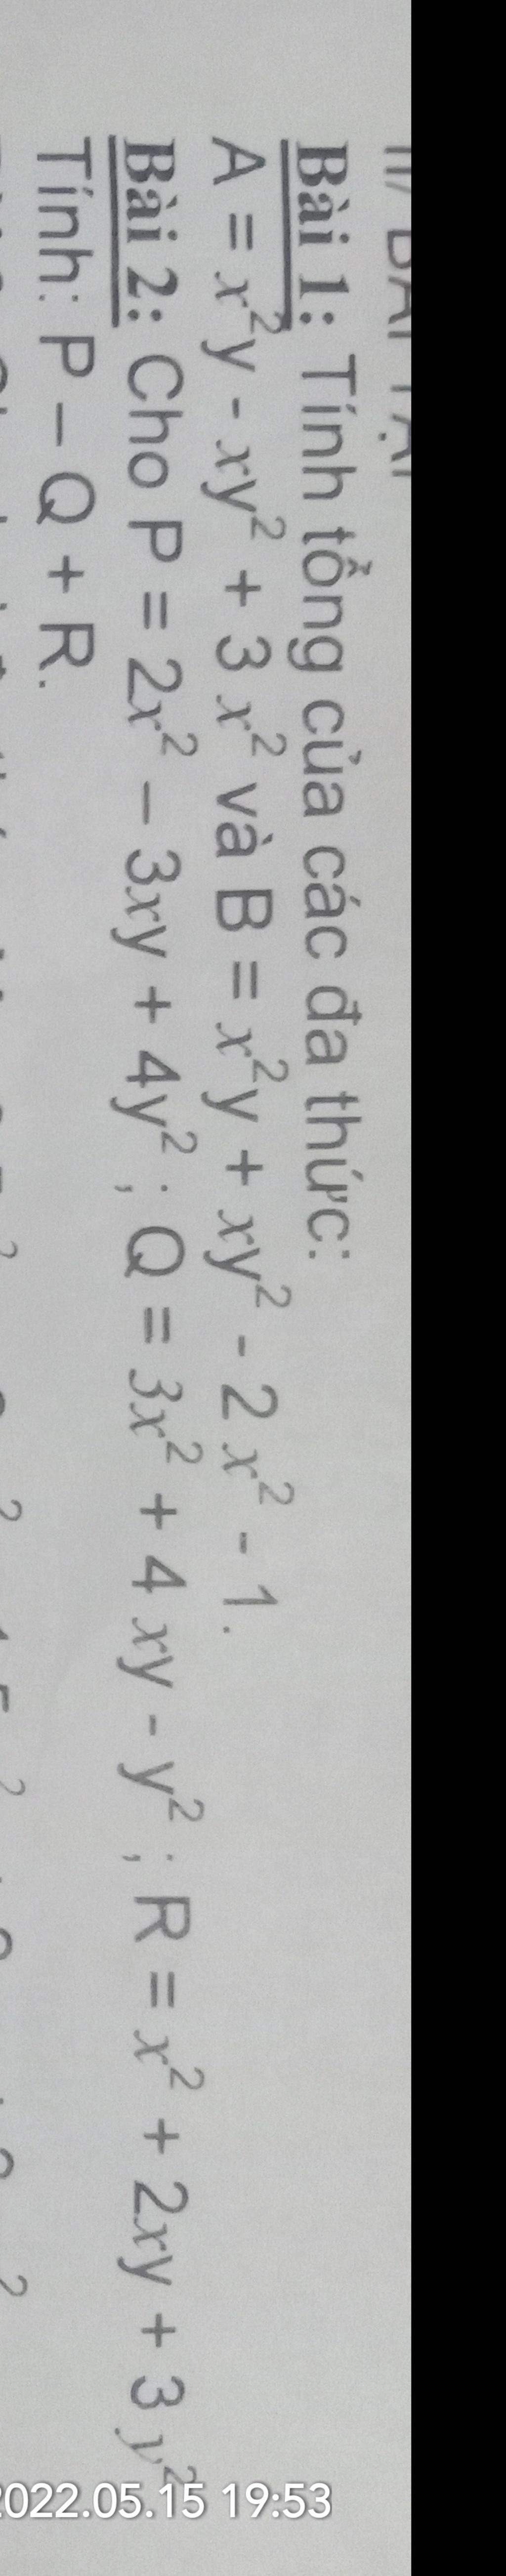 Bài 1: Tính tổng của các đa thức:
A = x²y - xy² + 3 x² và B = x²y + xy² - 2 x² - 1.
Bài 2: Cho P = 2x² – 3xy + 4y² ; Q = 3x² + 4 xy - y² ; R = x² + 2xy + 3 y²
Tính: P – Q + R.
2022.05.15 19:53